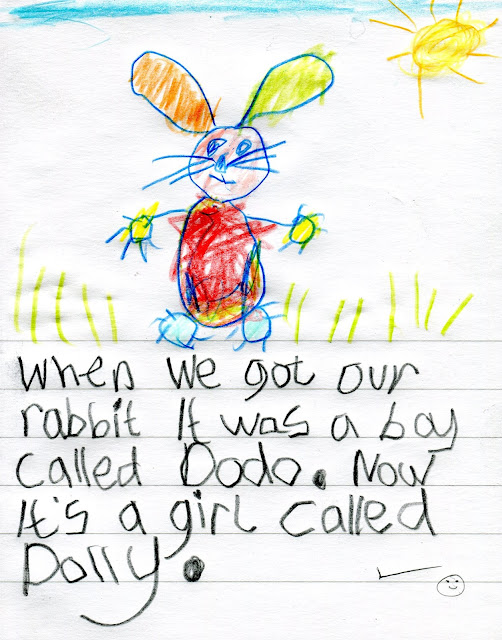 When we got our
rabbit It was a boy
called Dodo. Now
It's a girl called
Dolly.